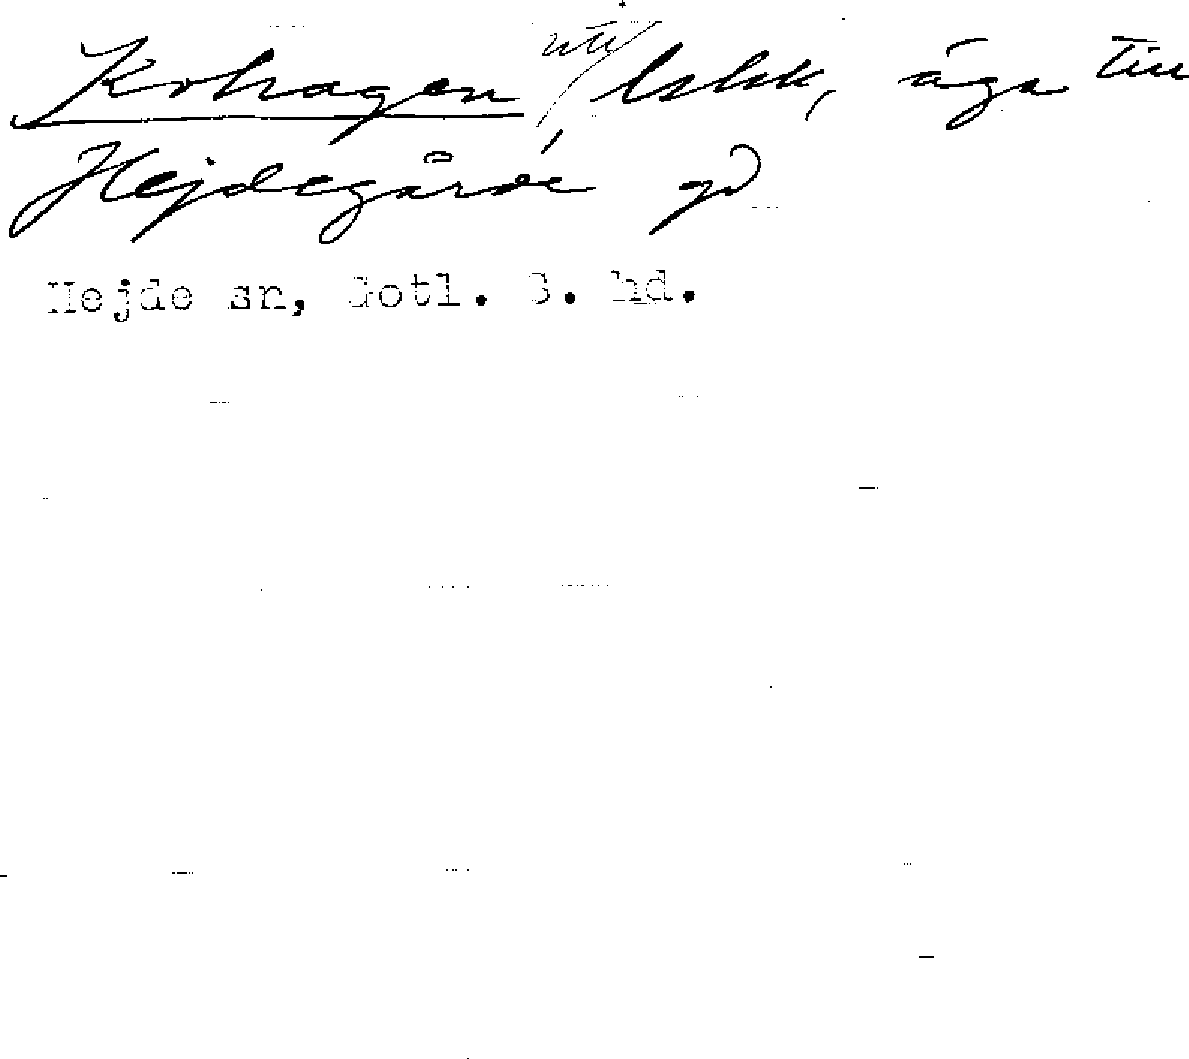 Kohagen uti äga till
Hejdegårde gd
Hejde sn, Gotl. S. hd.